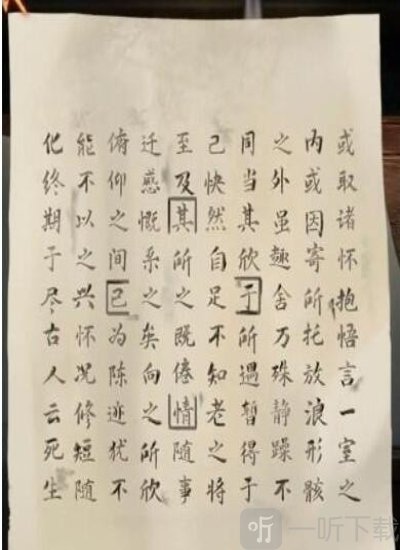 或取诸怀抱悟言一室之
内或因寄所托放浪形骸
之外虽趣舍万殊静躁不
同当其欣于所遇暫得于
己快然自足不知老之将
至及其所之既倦情随事
迁感慨系之矣向之所欣
俯仰之间已为陈迹犹不
能不以之兴怀况修短随
化终期于尽古人云死生
听 一听下载